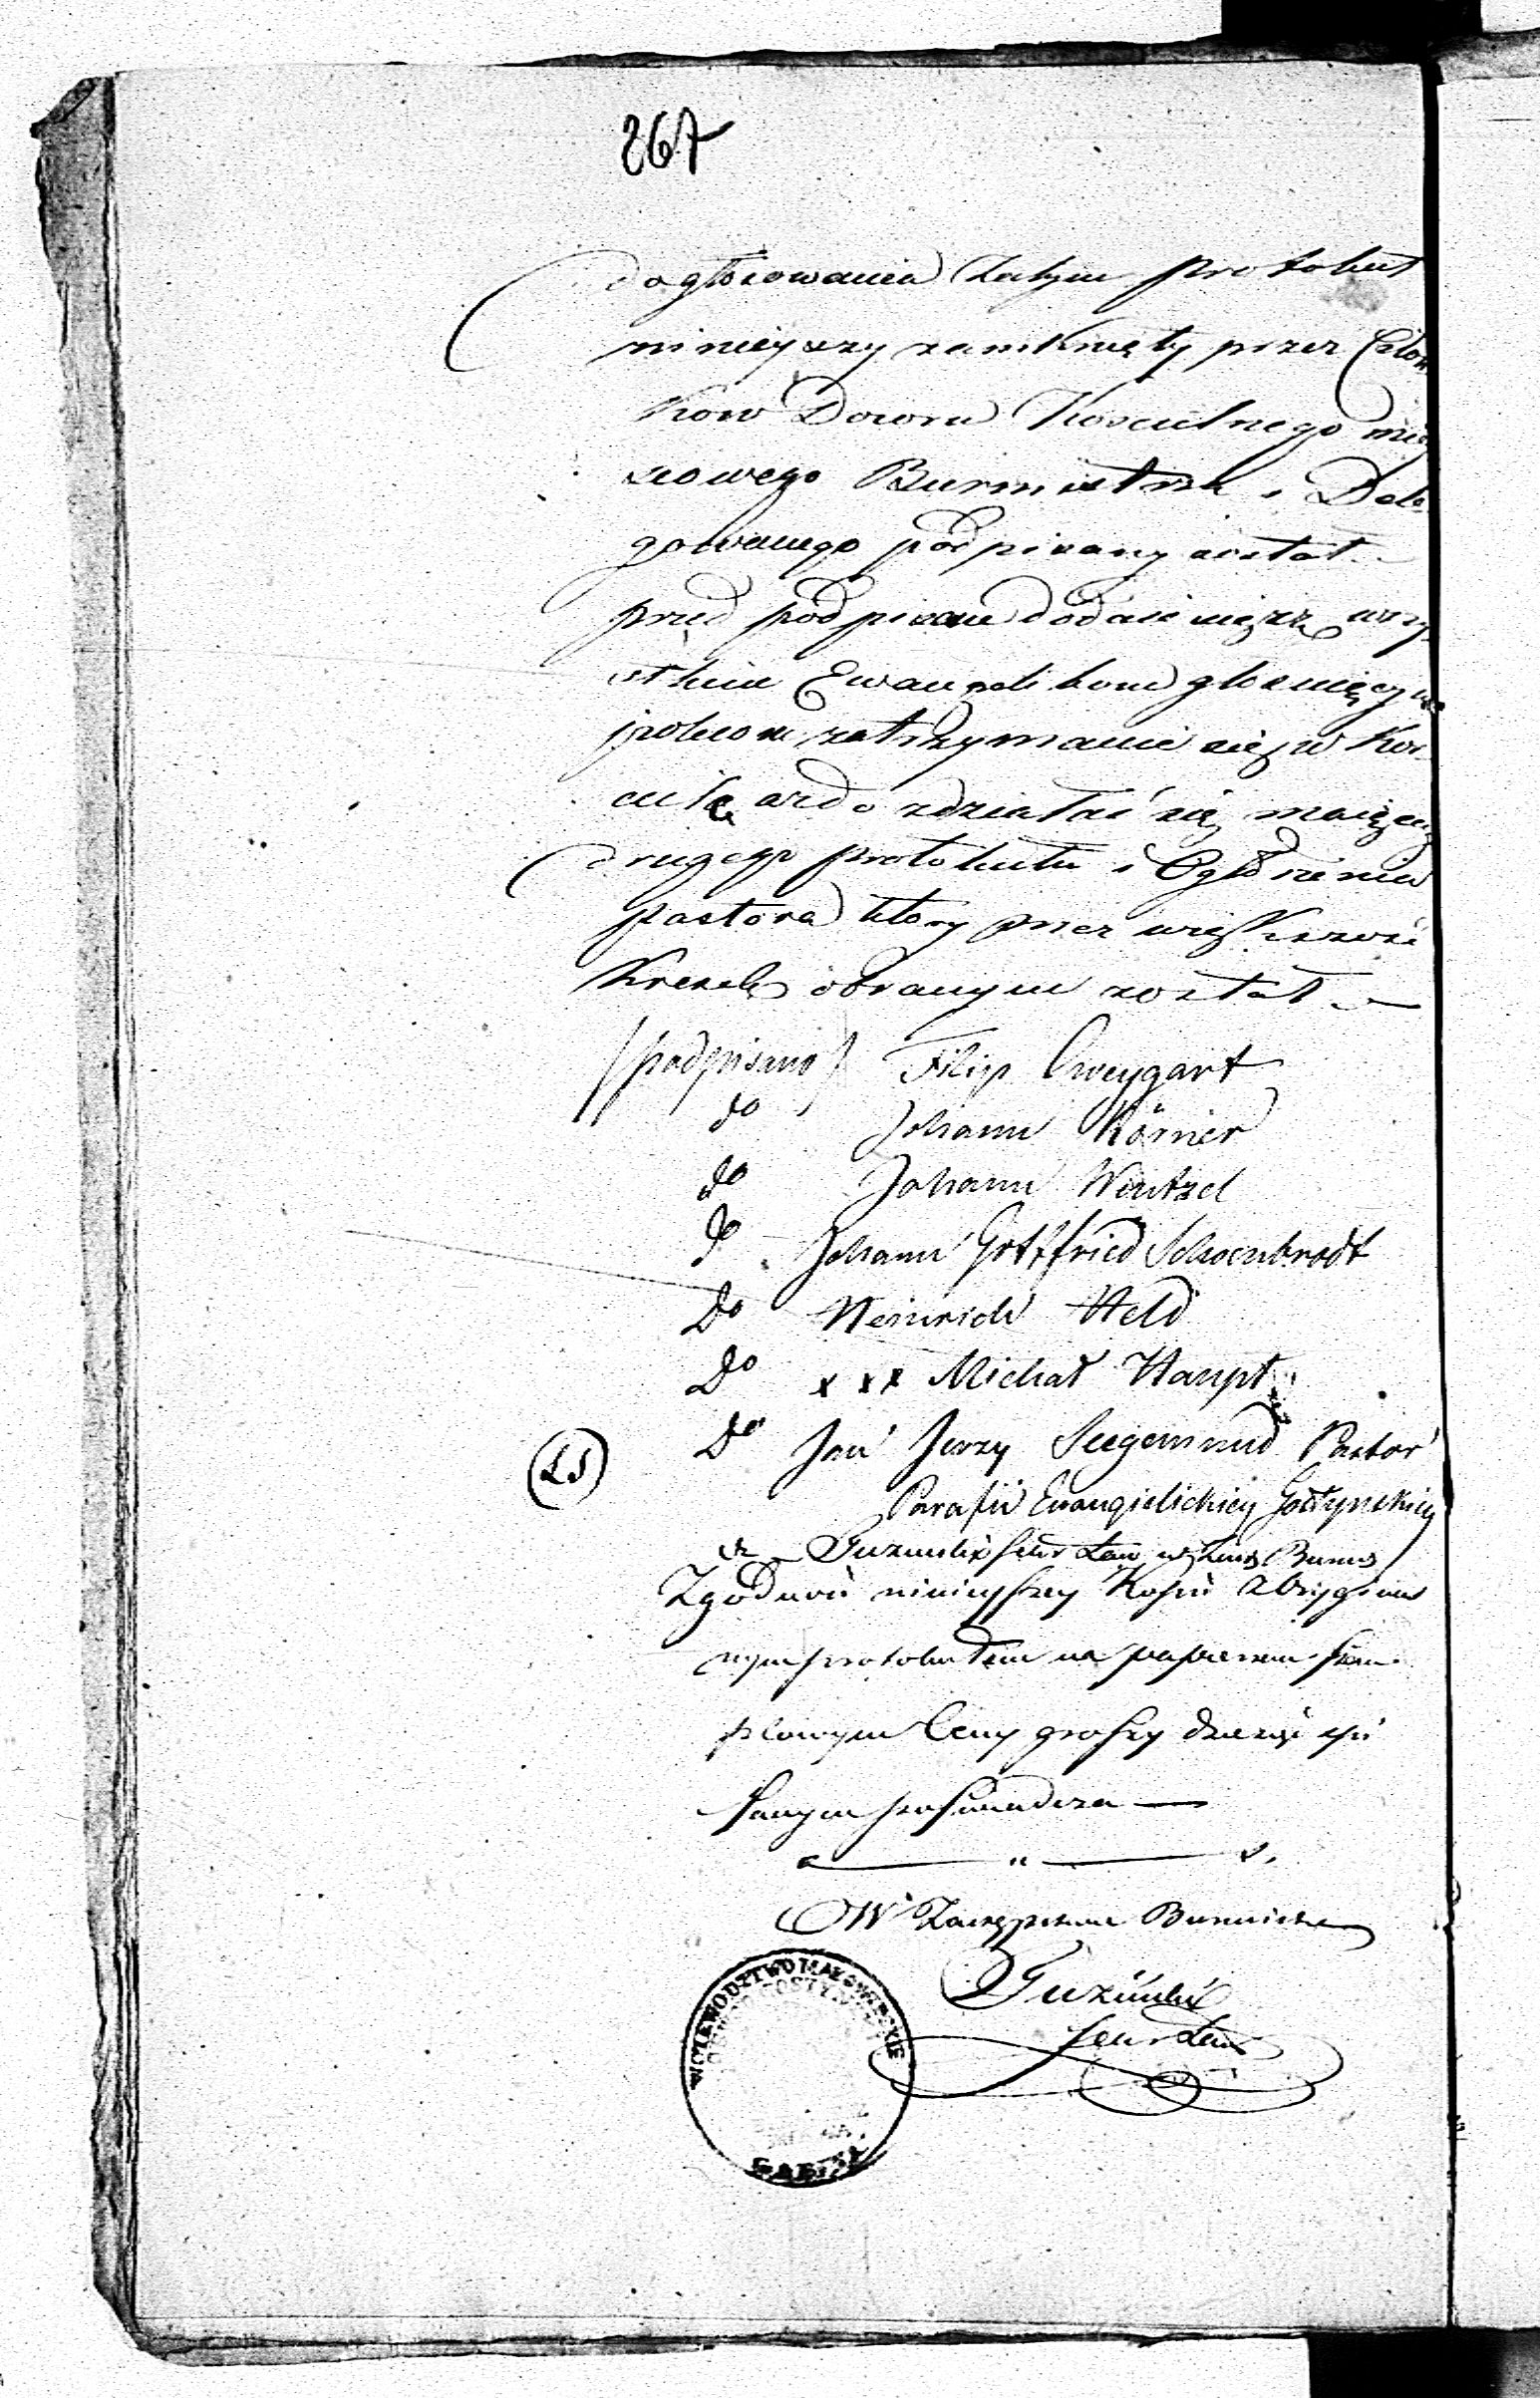 267
do głosowania zatym protokuł
ninieyszy zamknięty przez Człon
kow Dozoru Koscielnego miey
scowego Burmistrza i Dele
gowanego podpisany został. –
przed podpisem dodaie się ze wszy
stkim Ewangelikom głosuięcym
polecono zatrzymanie się w Kos
ciele az do zdziałać się maięcego
drugiego protokułu i Ogłoszenia
pastora ktory przez większość
Kresek obranym został. —
/podpisano/ Filip Cweygart
do Johann Körner
do Johann Wentzel
do Johann Gottfried Schoenbrodt
Do Heinrich Held
Do x x x Michał Haupt
Do Jan Jerzy Seegemund Pastor
(LS)
Parafii Ewangielickiey Gostynskiey
Zgodność ninieyszey Kopii z Oryginal
nym protokułem na papierze stem
plowym Ceny groszy dziesięć
sanym poswiadcza —
W Zastępstwie Burmistrza
WOIEWODZTWO MAZOWIECKIE